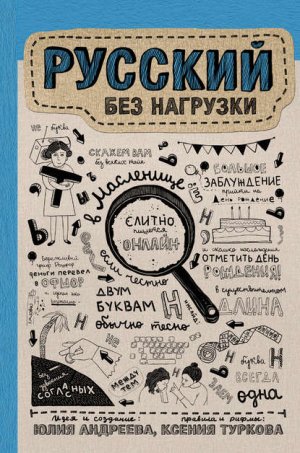 РУССКИЙ
БЕЗ НАГРУЗКИ
не буква
СКАЖЕМ ВАМ
без всяких тайн
Ь
Н
БОЛЬШОЕ
ЗАБЛУЖДЕНИЕ
прийти на
День рождение
в Масленице
СЛИТНО
пишется
ОНЛАЙН
ОТМЕТИТЬ ДЕНЬ
РОЖДЕНИЯ!
деньги перевел
в ОФШОР
если честно
ДВУМ
БУКВАМ
Н
обычно тесно
в существительном
ДЛИНА
Н
СОГЛАСНЫХ
между
тем
Н
буква
ВСЕГДА
одна
Идея и создание:
правила и рифмы:
ЮЛИЯ АНДРЕЕВА, КСЕНИЯ ТУРКОВА